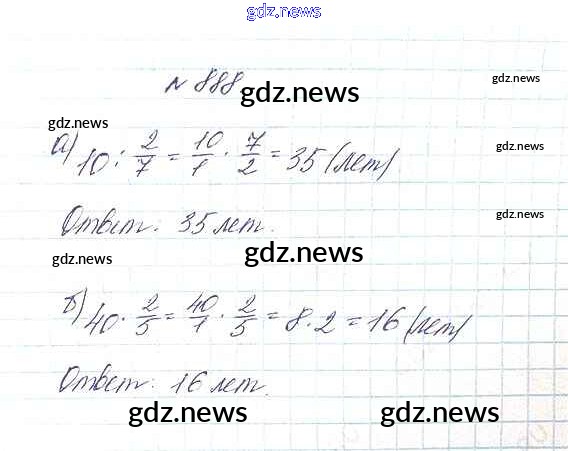 gdz.news
№ 888
gdz.news
gdz.news
gdz.news
а) 10 : 2/7 = 10/1 · 7/2 = 35 (лет)
gdz.news
Ответ: 35 лет.
gdz.news
gdz.news
gdz.news
б) 40 · 2/5 = 40/1 · 2/5 = 8 · 2 = 16 (лет)
Ответ: 16 лет.
gdz.news
gdz.news